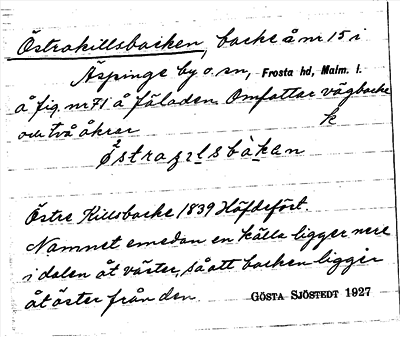 Östrakillsbacken, backe å nr 15 i
Äspinge by o. sn, Frosta hd, Malm. l.
å fig. nr 71 å fäladen. Omfattar vägbacke
och två åkrar k
Östre Killsbacke 1839 Häfdefört.
Namnet emedan en källa ligger nere
i dalen åt väster, så att backen ligger
åt öster från den.
GÖSTA SJÖSTEDT 1927